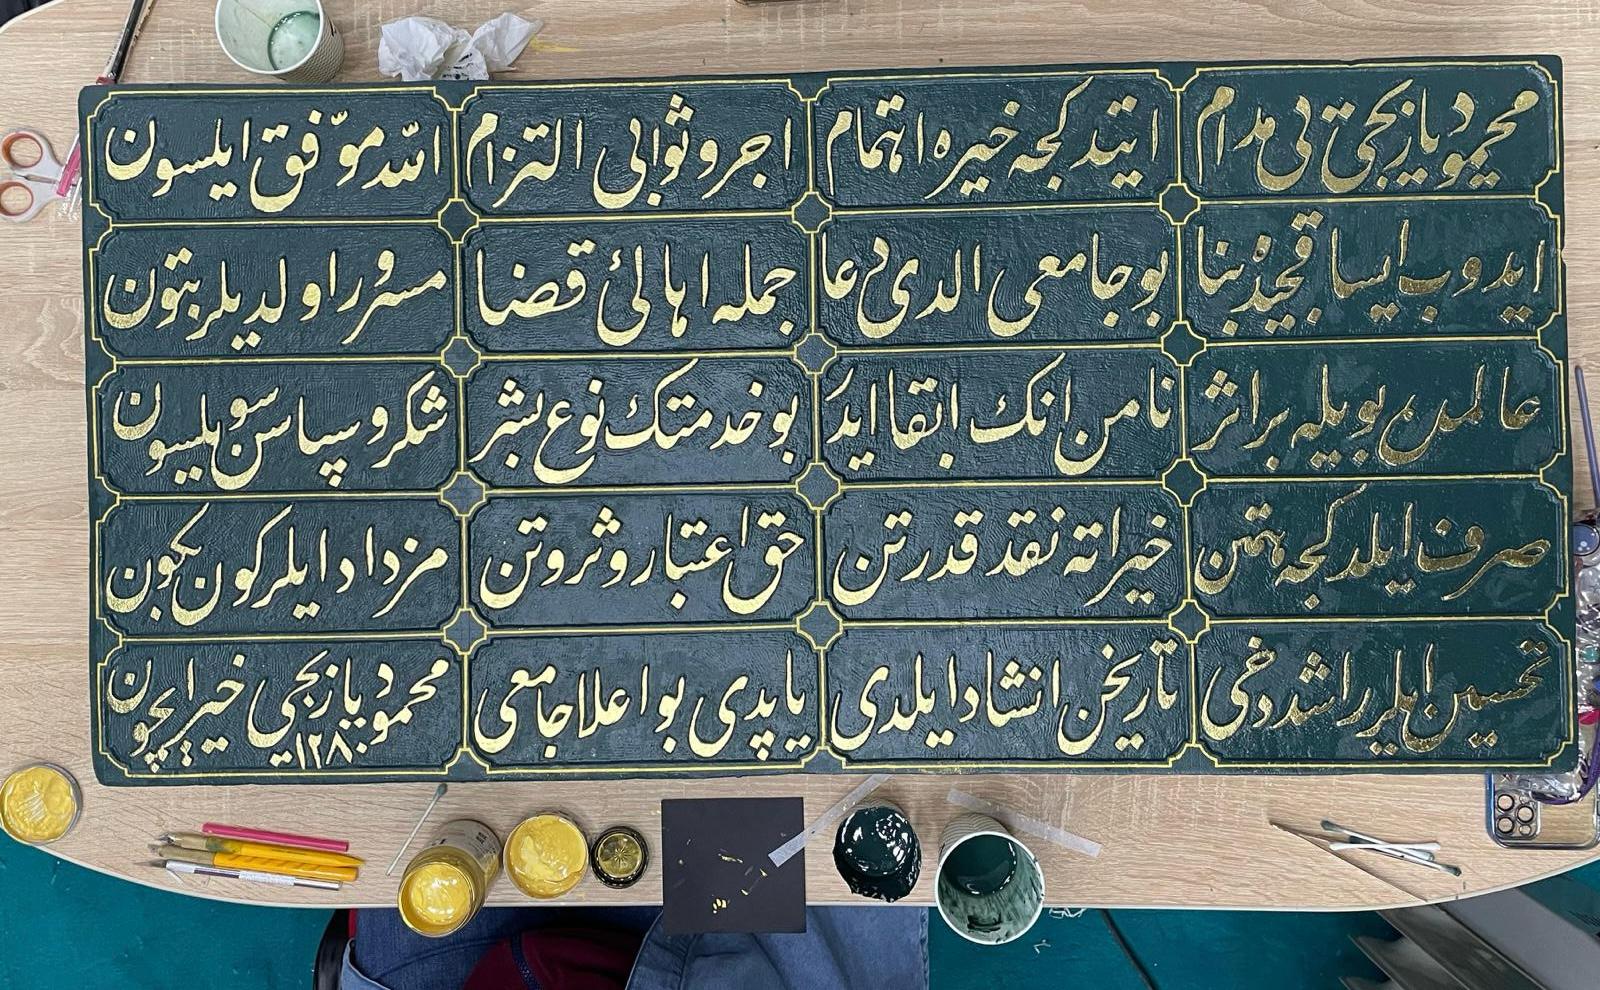 محمود یازیجی بی مدام
ایتدکجه خیره اهتمام
اجر و ثوابی التزام
الله موفق ایلسون
ایدوب ایسا قجیدن بنا
بو جامعی الدی دعا
جمله اهالئ قضا
مسرور اولدیلر بتون
عالمده بویله بر اثر
نامن انک ابقا ایدر
بو خدمتک نوع بشر
شکر و سپاسن سویلسون
صرف ایلدکجه همتن
خیراته نقد قدرتن
حق اعتبار و ثروتن
مزداد ایلر کون بکون
تحسین ایلر راشد دخی
تاریخن انشاد ایلدی
یاپدی بو اعلا جامعی
محمود یازیجی خیر ایچون
۱۲۸۰